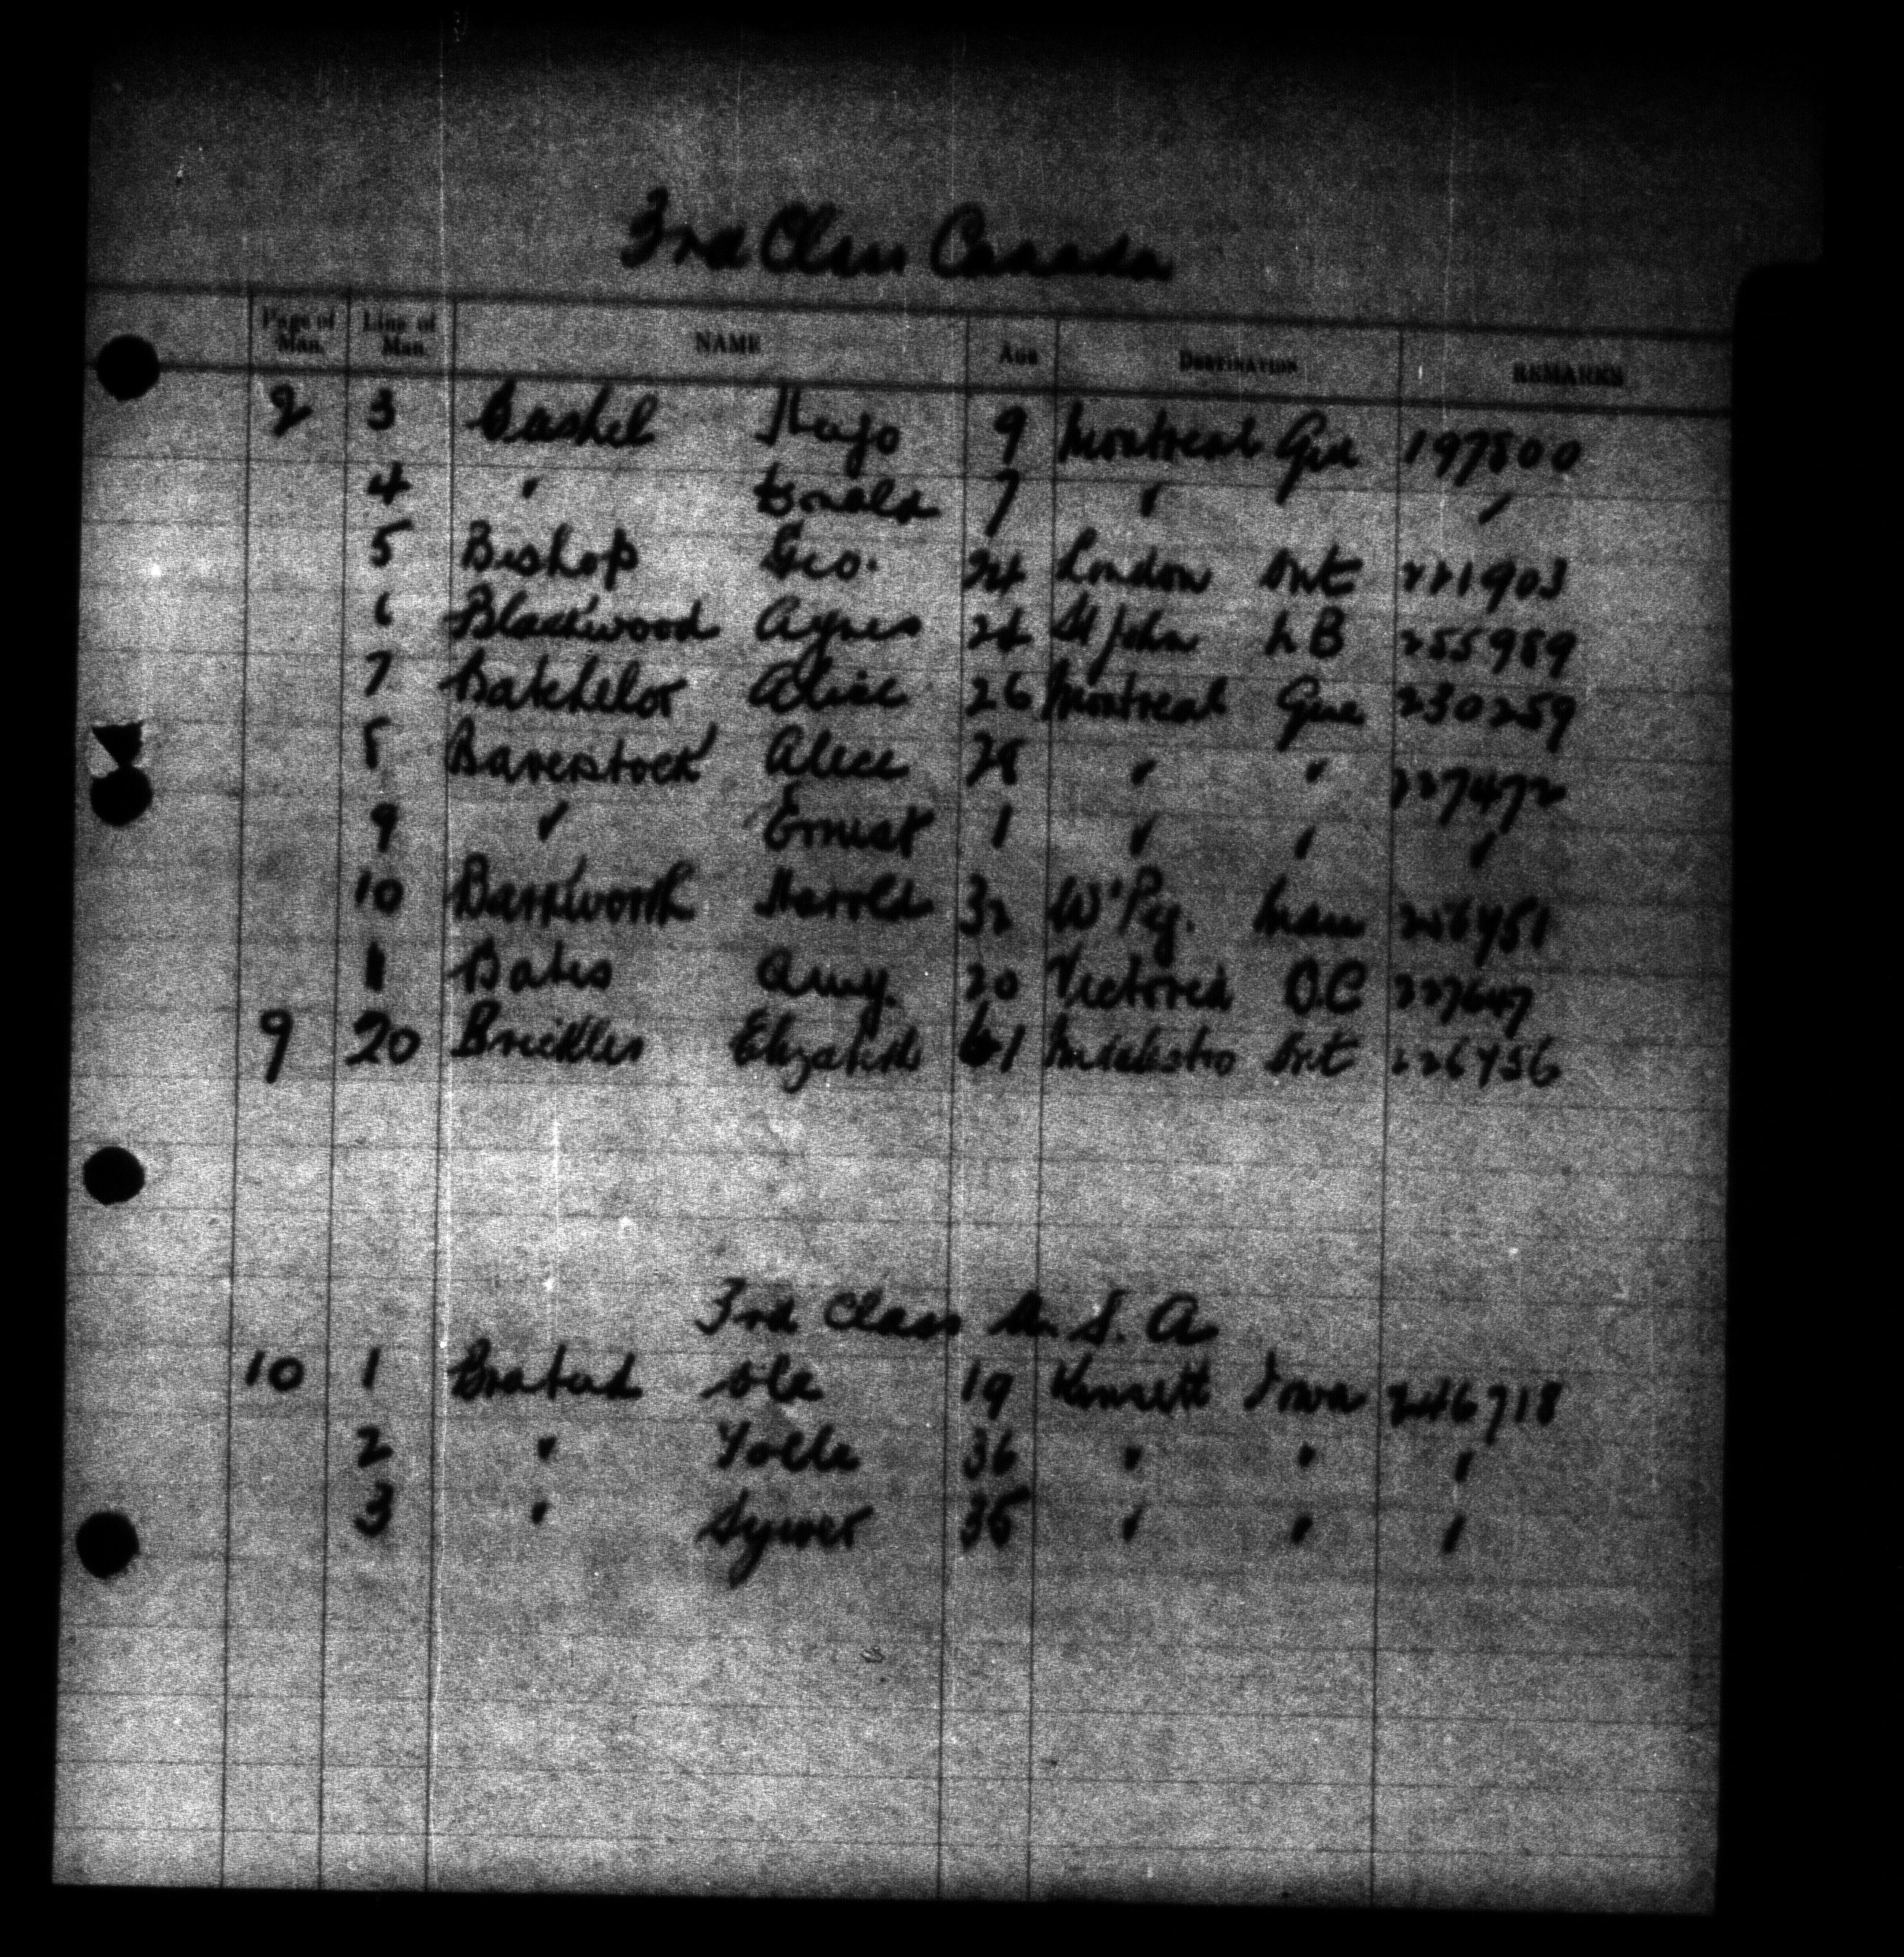 3rd Class Canada
Page of Man. Line of Man. NAME AGE DESTINATION REMARKS
2 3 Hugo 9 Montreal Que 197800
4 " Donald 7 " "
5 Bishop Geo. 24 London Ont 221903
6 Blackwood Agnes 24 St John N B 255989
7 Batchelor Alice 26 Montreal Que 230259
8 Baverstock Alice 28 " " 227472
9 " Ernest 1 " " "
10 Barkworth Harold 32 W'Pg. Man 226951
1 Bates Amy. 20 Victoria B.C 227647
9 20 Elizabeth 61 Ont 226956
3rd Class U. S. A
10 1 Ole 19 Kensett Iowa 246718
2 " 36 " " "
3 " 35 " " "